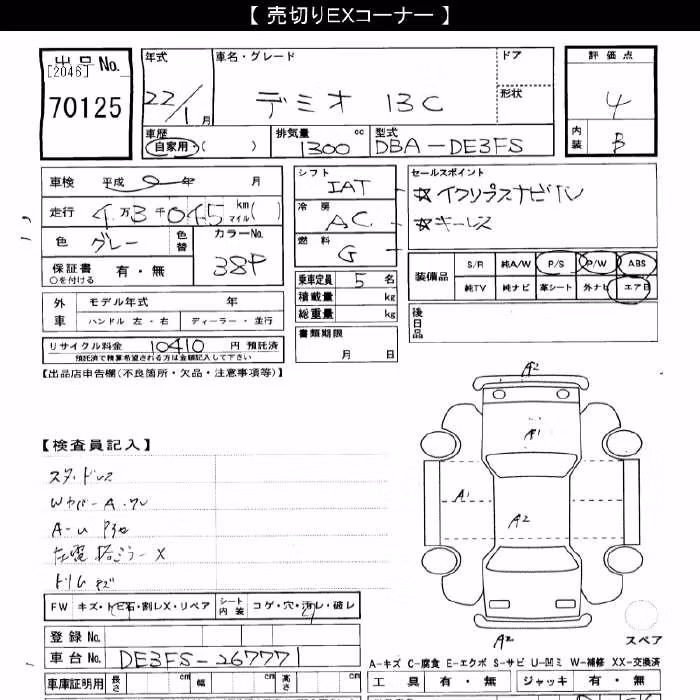 【 売切りEXコーナー 】
出品No.
[2046]
70125
年式
22/1月
車名・グレード
デミオ 13C
ドア
形状
評価点
4
内装
B
車歴
自家用・( )
排気量 cc
1300
型式
DBA-DE3FS
車検 平成 年 月
走行 4万3千045 km マイル( )
色 グレー
色替
カラーNo.
38P
保証書 有・無
○を付ける
シフト
IAT
冷房
AC
燃料
G
セールスポイント
☆イクリプスナビTV
☆キーレス
装備品
S/R 純A/W P/S P/W ABS
純TV 純ナビ 革シート 外ナビ エアB
乗車定員 5 名
積載量 kg
総重量 kg
書類期限
月 日
後日品
外車
モデル年式 年
ハンドル 左・右 ディーラー・並行
リサイクル料金 10410 円 預託済
預託済で精算希望される方は金額記入して下さい
【出品店申告欄(不良箇所・欠品・注意事項等)】
【検査員記入】
スタッドレス
Wカバー A・ワレ
A-U P3ヶ
トリムキズ
A2
A1
A1
A2
A2
スペア
FW キズ・トビ石・割レX・リペア
シート内装 コゲ・穴・汚レ・破レ
登録 No.
車台 No. DE3FS-267771
車庫証明用 長さ cm 幅 cm 高さ cm
A-キズ C-腐食 E-エクボ S-サビ U-凹ミ W-補修 XX-交換済
工具 有・無 ジャッキ 有・無